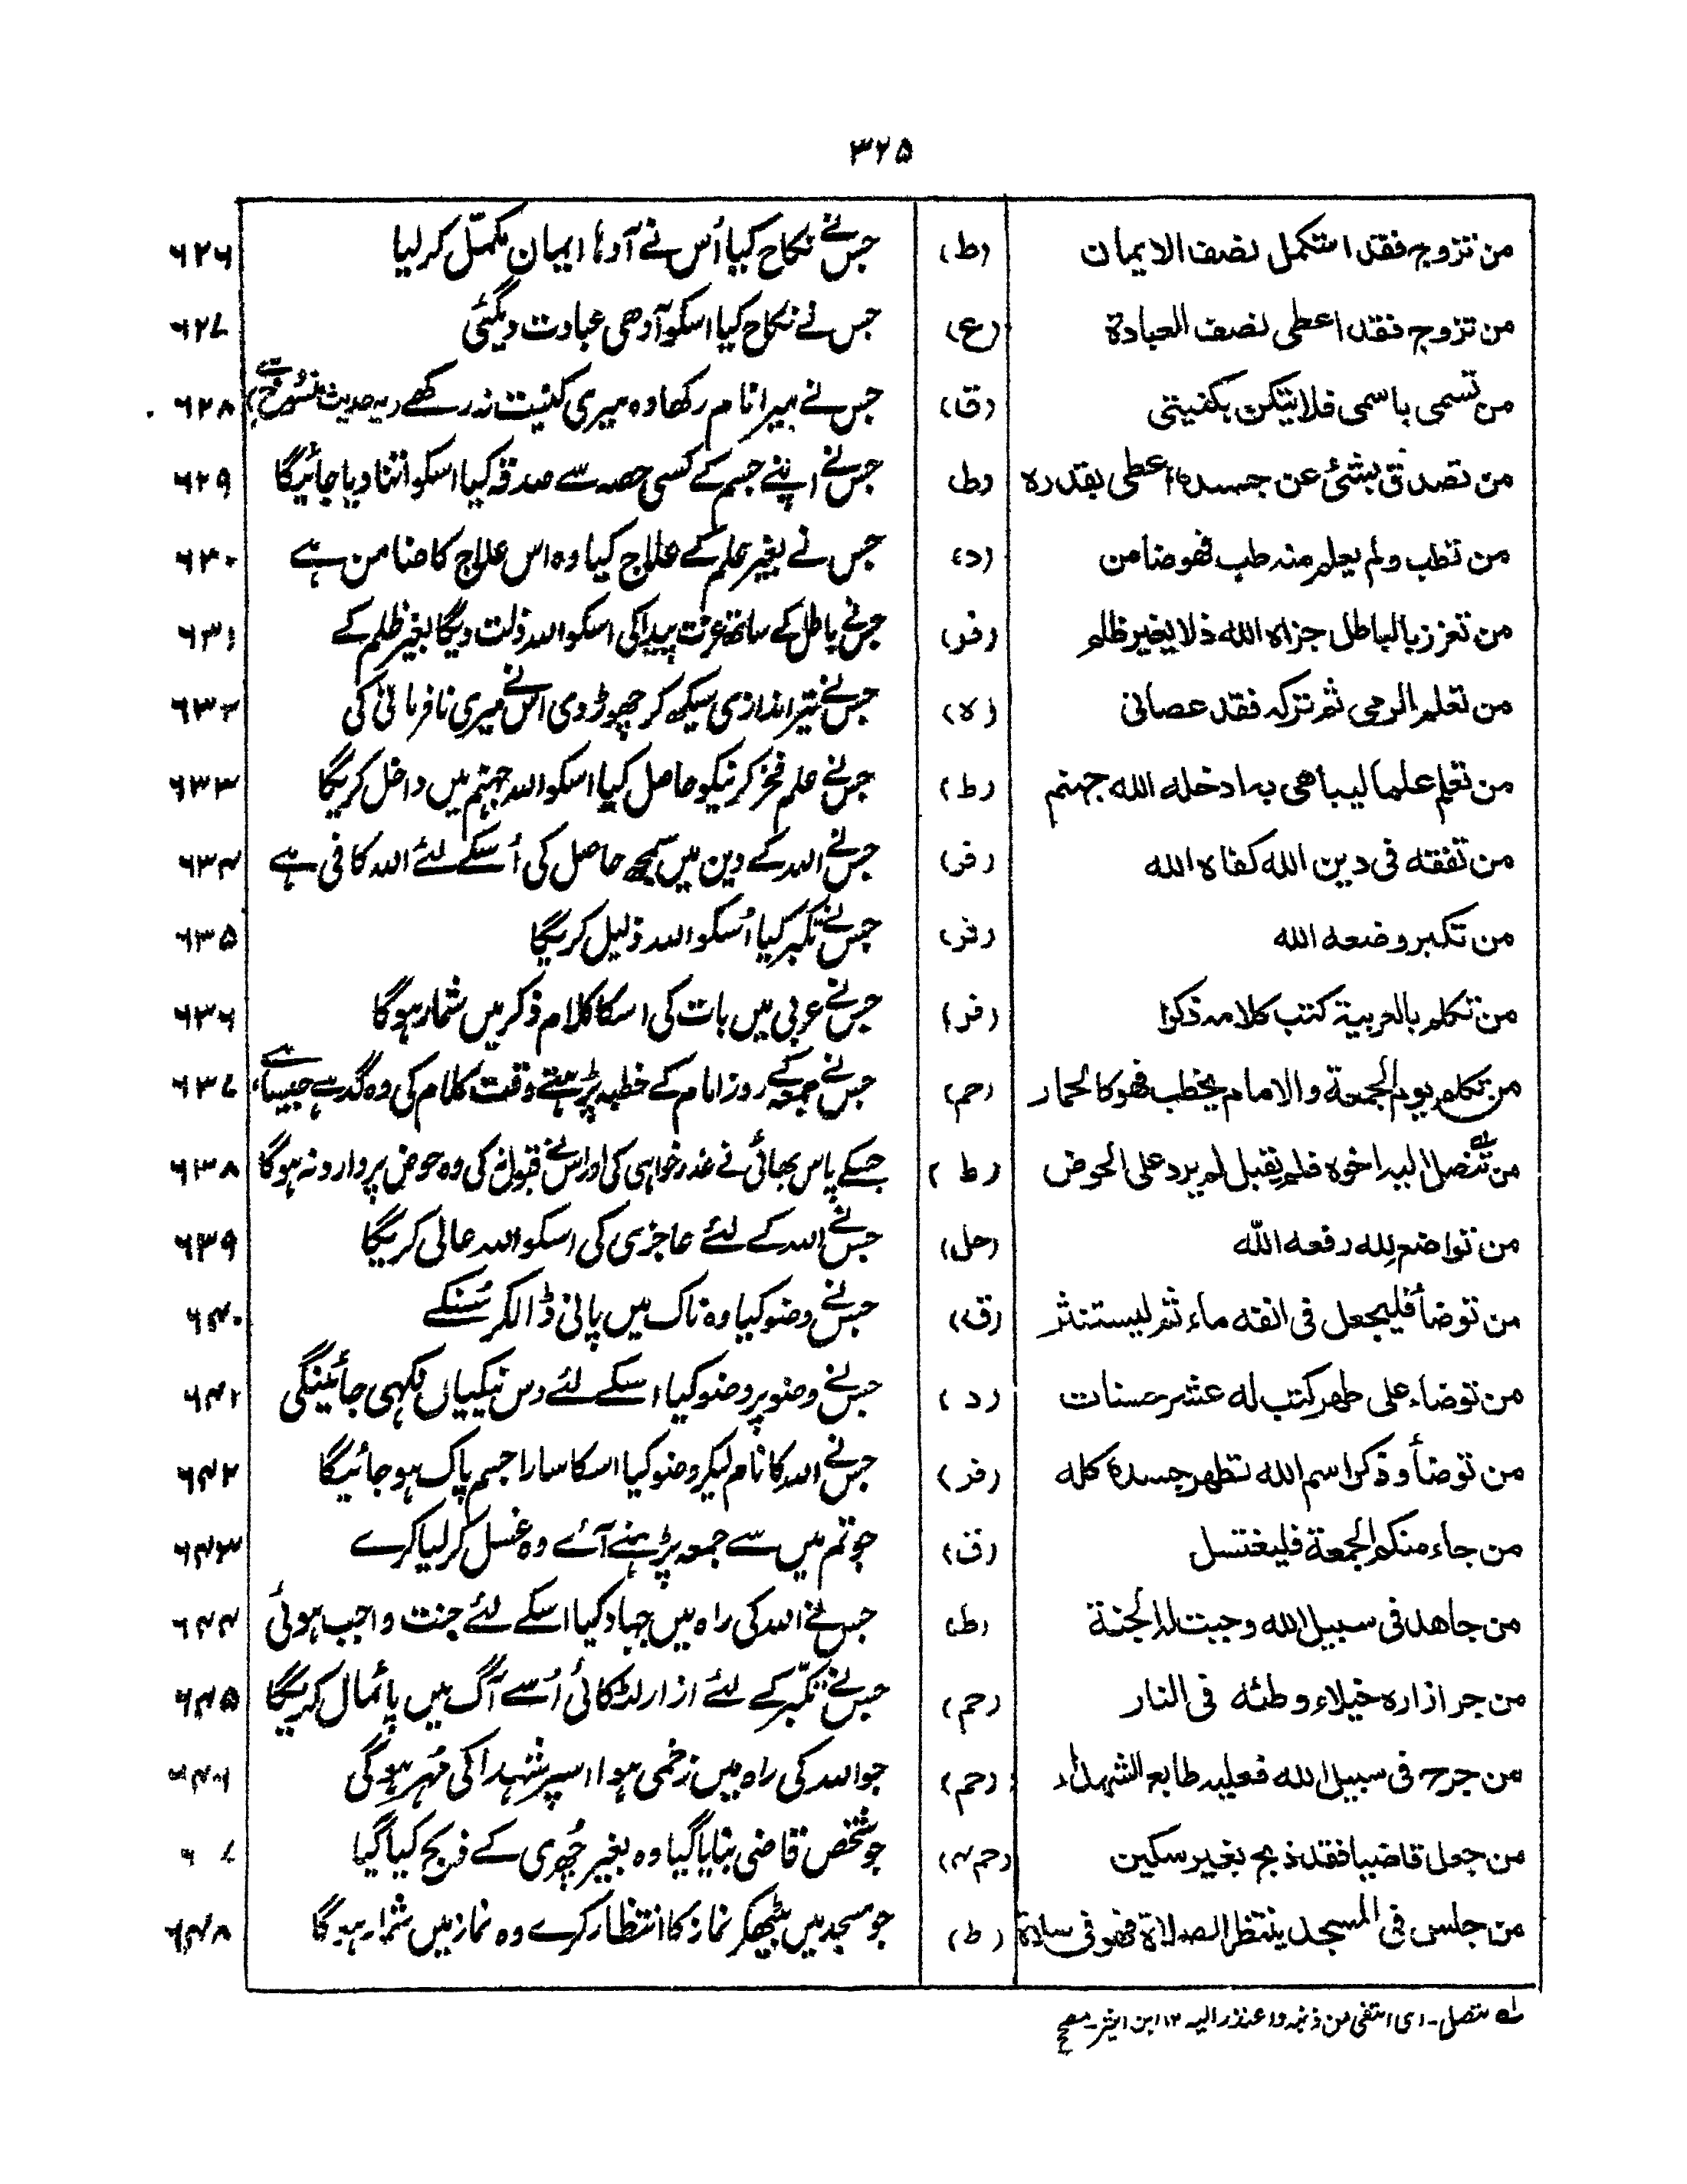 ۳۲۵
من تزوج فقد استکمل نصف الایمان (ط) جس نے نکاح کیا اُس نے آدہا ایمان مکمّل کرلیا ۶۲۶
من تزوج فقد اعطی نصف العبادة (ع) جس نے نکاح کیا اسکو آدھی عبادت دیگئی ۶۲۷
من تسمی باسمی فلا یتکن بکنیتی (ق) جس نے میرا نام رکھا وہ میری کنیت نہ رکھے (یہ حدیث منسوخ ہے) ۶۲۸
من تصدق بشئ عن جسده اعطی بقدره (ط) جس نے اپنے جسم کے کسی حصہ سے صدقہ کیا اسکو اتنا دیا جائیگا ۶۲۹
من تطبب ولم یعلم منه طب فهو ضامن (د) جس نے بغیر علم کے علاج کیا وہ اس علاج کا ضامن ہے ۶۳۰
من تعزز بالباطل جزاه الله ذلا بغیر ظلم (فر) جس نے باطل کے ساتھ عزت پیدا کی اسکو اللہ ذلت دیگا بغیر ظلم کے ۶۳۱
من تعلم الرمی ثم ترکه فقد عصانی (ہ) جس نے تیر اندازی سیکھ کر چھوڑ دی اس نے میری نافرمانی کی ۶۳۲
من تعلم علما لیباهی به ادخله الله جهنم (ط) جس نے علم فخر کرنیکو حاصل کیا اسکو اللہ جہنم میں داخل کریگا ۶۳۳
من تفقه فی دین الله کفاه الله (فر) جس نے اللہ کے دین میں سمجھ حاصل کی اُسکے لئے اللہ کافی ہے ۶۳۴
من تکبر وضعه الله (فر) جس نے تکبر کیا اُسکو اللہ ذلیل کریگا ۶۳۵
من تکلم بالعربیة کتب کلامه ذکرا (فر) جس نے عربی میں بات کی اسکا کلام ذکر میں شمار ہوگا ۶۳۶
من تکلم یوم الجمعة والامام یخطب فهو کالحمار (حم) جس نے جمعہ کے روز امام کے خطبہ پڑہتے وقت کلام کی وہ گدہے جیسا ہے ۶۳۷
من تنصل لہ الیه اخوه فلم یقبل لم یرد علی الحوض (ط) جسکے پاس بھائی نے عذر خواہی کی اور اس نے قبول نہ کی وہ حوض پر وارد نہ ہوگا ۶۳۸
من تواضع لله رفعه الله (حل) جس نے اللہ کے لئے عاجزی کی اسکو اللہ عالی کریگا ۶۳۹
من توضأ فلیجعل فی انفه ماء ثم لیستنثر (ق) جس نے وضو کیا وہ ناک میں پانی ڈالکر سُنکے ۶۴۰
من توضاء علی طهر کتب له عشر حسنات (د) جس نے وضو پر وضو کیا اسکے لئے دس نیکیاں لکہی جائینگی ۶۴۱
من توضأ وذکر اسم الله تطهر جسده کله (فر) جس نے اللہ کا نام لیکر وضو کیا اسکا سارا جسم پاک ہو جائیگا ۶۴۲
من جاء منکم الجمعة فلیغتسل (ق) جو تم میں سے جمعہ پڑہنے آئے وہ غسل کر لیا کرے ۶۴۳
من جاهد فی سبیل الله وجبت له الجنة (ط) جس نے اللہ کی راہ میں جہاد کیا اسکے لئے جنت واجب ہوئی ۶۴۴
من جر ازاره خیلاء وطئه فی النار (حم) جس نے تکبّر کے لئے ازار لٹکائی اُسے آگ میں پائمال کریگا ۶۴۵
من جرح فی سبیل الله فعلیه طابع الشهداء (حم) جو اللہ کی راہ میں زخمی ہوا اسپر شہدا کی مُہر ہوگی
من جعل قاضیا فقد ذبح بغیر سکین (حم۴) جو شخص قاضی بنایا گیا وہ بغیر چُھری کے ذبح کیا گیا
من جلس فی المسجد ینتظر الصلاة فهو فی صلاة (ط) جو مسجد میں بیٹھکر نماز کا انتظار کرے وہ نماز میں شمار ہوگا ۶۴۸
لہ تنصل۔ ای انتفی من ذنبه واعتذر الیه ۱۲ ابن اثیر۔ مصحح